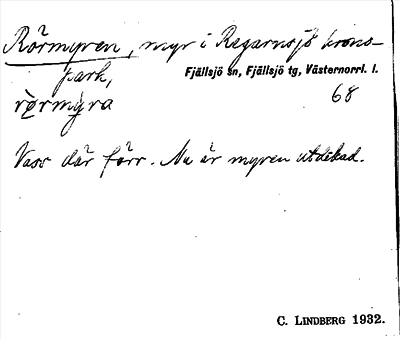 Rörmyren, myr i Regarnsjö krono-
park,
Fjällsjö sn, Fjällsjö tg, Västernorrl. l.
rö̀rmy̋ra
68
Vass där förr. Nu är myren utdikad.
C. LINDBERG 1932.